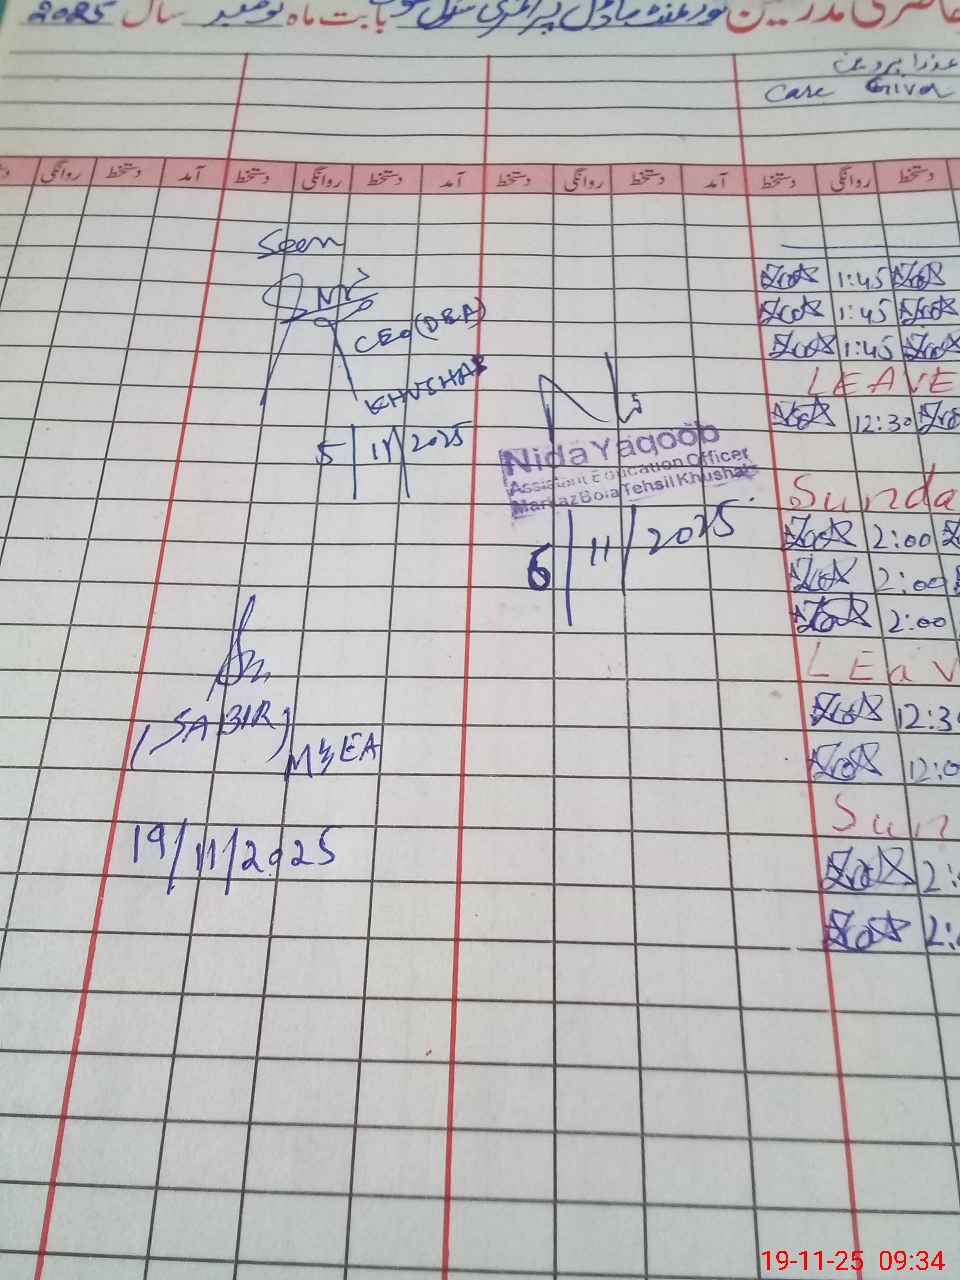 حاضری مدرسین گورنمنٹ ماڈل پرائمری سکول بابت ماہ نومبر سال 2025
عذرا پروین
Care Giver
روانگی دستخط آمد دستخط روانگی دستخط آمد دستخط روانگی دستخط آمد دستخط روانگی دستخط
Seen
CEO (DEA)
KHUSHAB
5/11/2025
Nida Yaqoob
Assistant Education Officer
Markaz Bola Tehsil Khushab
6/11/2025
(SABIR)
MEA
19/11/2025
1:45
1:45
1:45
LEAVE
12:30
Sunda
2:00
2:00
2:00
LEav
12:3
12:0
Sun
2:
2:
19-11-25 09:34